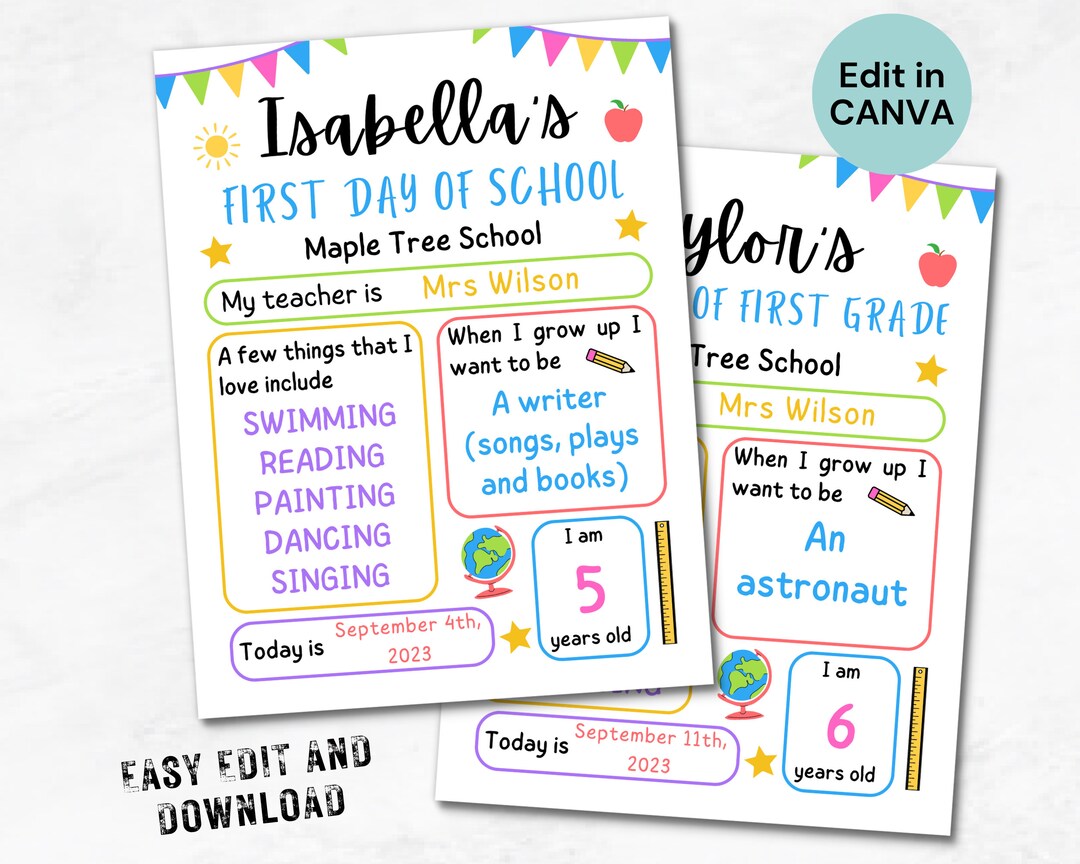 Edit in
CANVA
Isabella's
FIRST DAY OF SCHOOL
Maple Tree School
My teacher is Mrs Wilson
A few things that I
love include
SWIMMING
READING
PAINTING
DANCING
SINGING
When I grow up I
want to be
A writer
(songs, plays
and books)
I am
5
years old
Today is September 4th,
2023
OF FIRST GRADE
Tree School
Mrs Wilson
When I grow up I
want to be
An
astronaut
I am
6
years old
Today is September 11th,
2023
EASY EDIT AND
DOWNLOAD